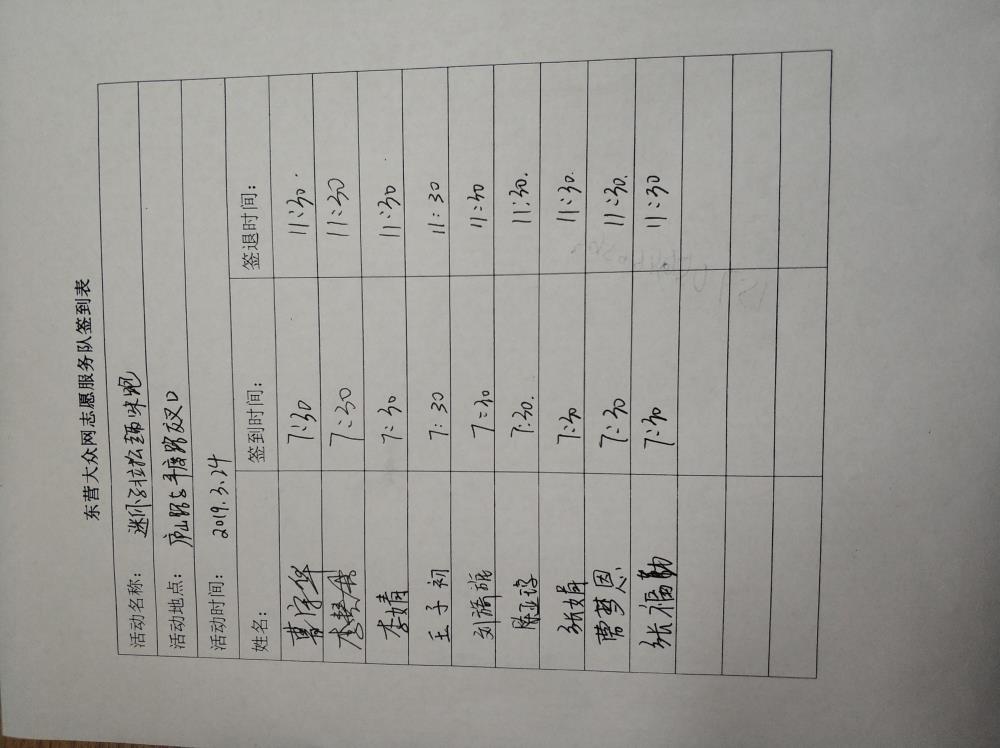 东营大众网志愿服务队签到表
活动名称: 迷你马拉松 跑
活动地点: 庐山路与 路交叉口
活动时间: 2019.3.24
姓名: 签到时间: 签退时间:
曹 华 7:30 11:30.
李 7:30 11:30
李婧 7:30 11:30
王子初 7:30 11:30
刘 7:30 11:30
陈亚 7:30. 11:30.
张娟 7:30 11:30.
曹梦恩 7:30 11:30.
张福勤 7:30 11:30